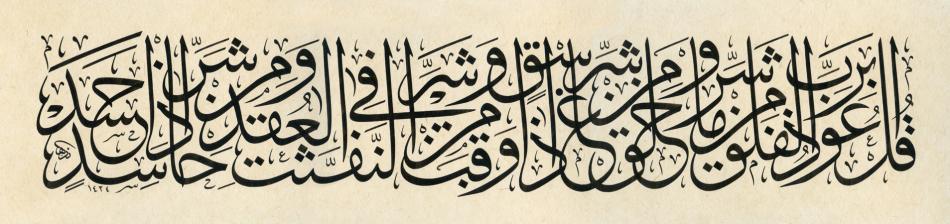 قُلْ أَعُوذُ بِرَبِّ الْفَلَقِ مِن شَرِّ مَا خَلَقَ وَمِن شَرِّ غَاسِقٍ إِذَا وَقَبَ وَمِن شَرِّ النَّفَّٰثَٰتِ فِي الْعُقَدِ وَمِن شَرِّ حَاسِدٍ إِذَا حَسَدَ
١٤٢٤